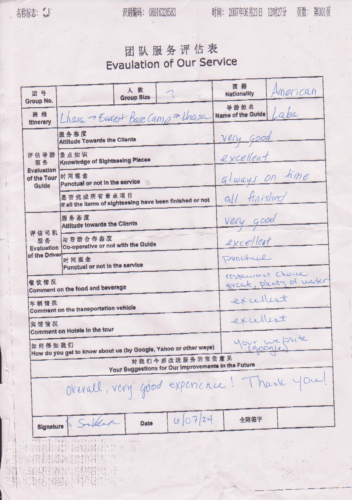 名称标志: 识别编码: 08916328583 时间: 2007年06月21日 12时27分 页数: 第001页
团队服务评估表
Evaulation of Our Service
团号 Group No. 人数 Group Size 2 国籍 Nationality American
路线 Itinerary Lhasa → Everest Base Camp → Lhasa 导游姓名 Name of the Guide Laba
评估导游服务 Evaluation of the Tour Guide
服务态度 Attitude Towards the Clients very good
景点知识 Knowledge of Sightseeing Places excellent
时间观念 Punctual or not in the service always on time
是否完成所有景点项目 If all the items of sightseeing have been finished or not all finished
评估司机服务 Evaluation of the Driver
服务态度 Attitude towards the Clients very good
与导游合作态度 Co-operative or not with the Guide excellent
时间观念 Punctual or not in the service punctual
餐饮情况 Comment on the food and beverage restaurant choice great, plenty of water
车辆情况 Comment on the transportation vehicle excellent
宾馆情况 Comment on Hotels in the tour excellent
如何得知我们 How do you get to know about us (by Google, Yahoo or other ways) your website (google)
对我们今后改进服务的宝贵意见
Your Suggestions for Our Improvements in the Future
overall, very good experience! Thank you!
Signature Date 6/07/24 全陪签字